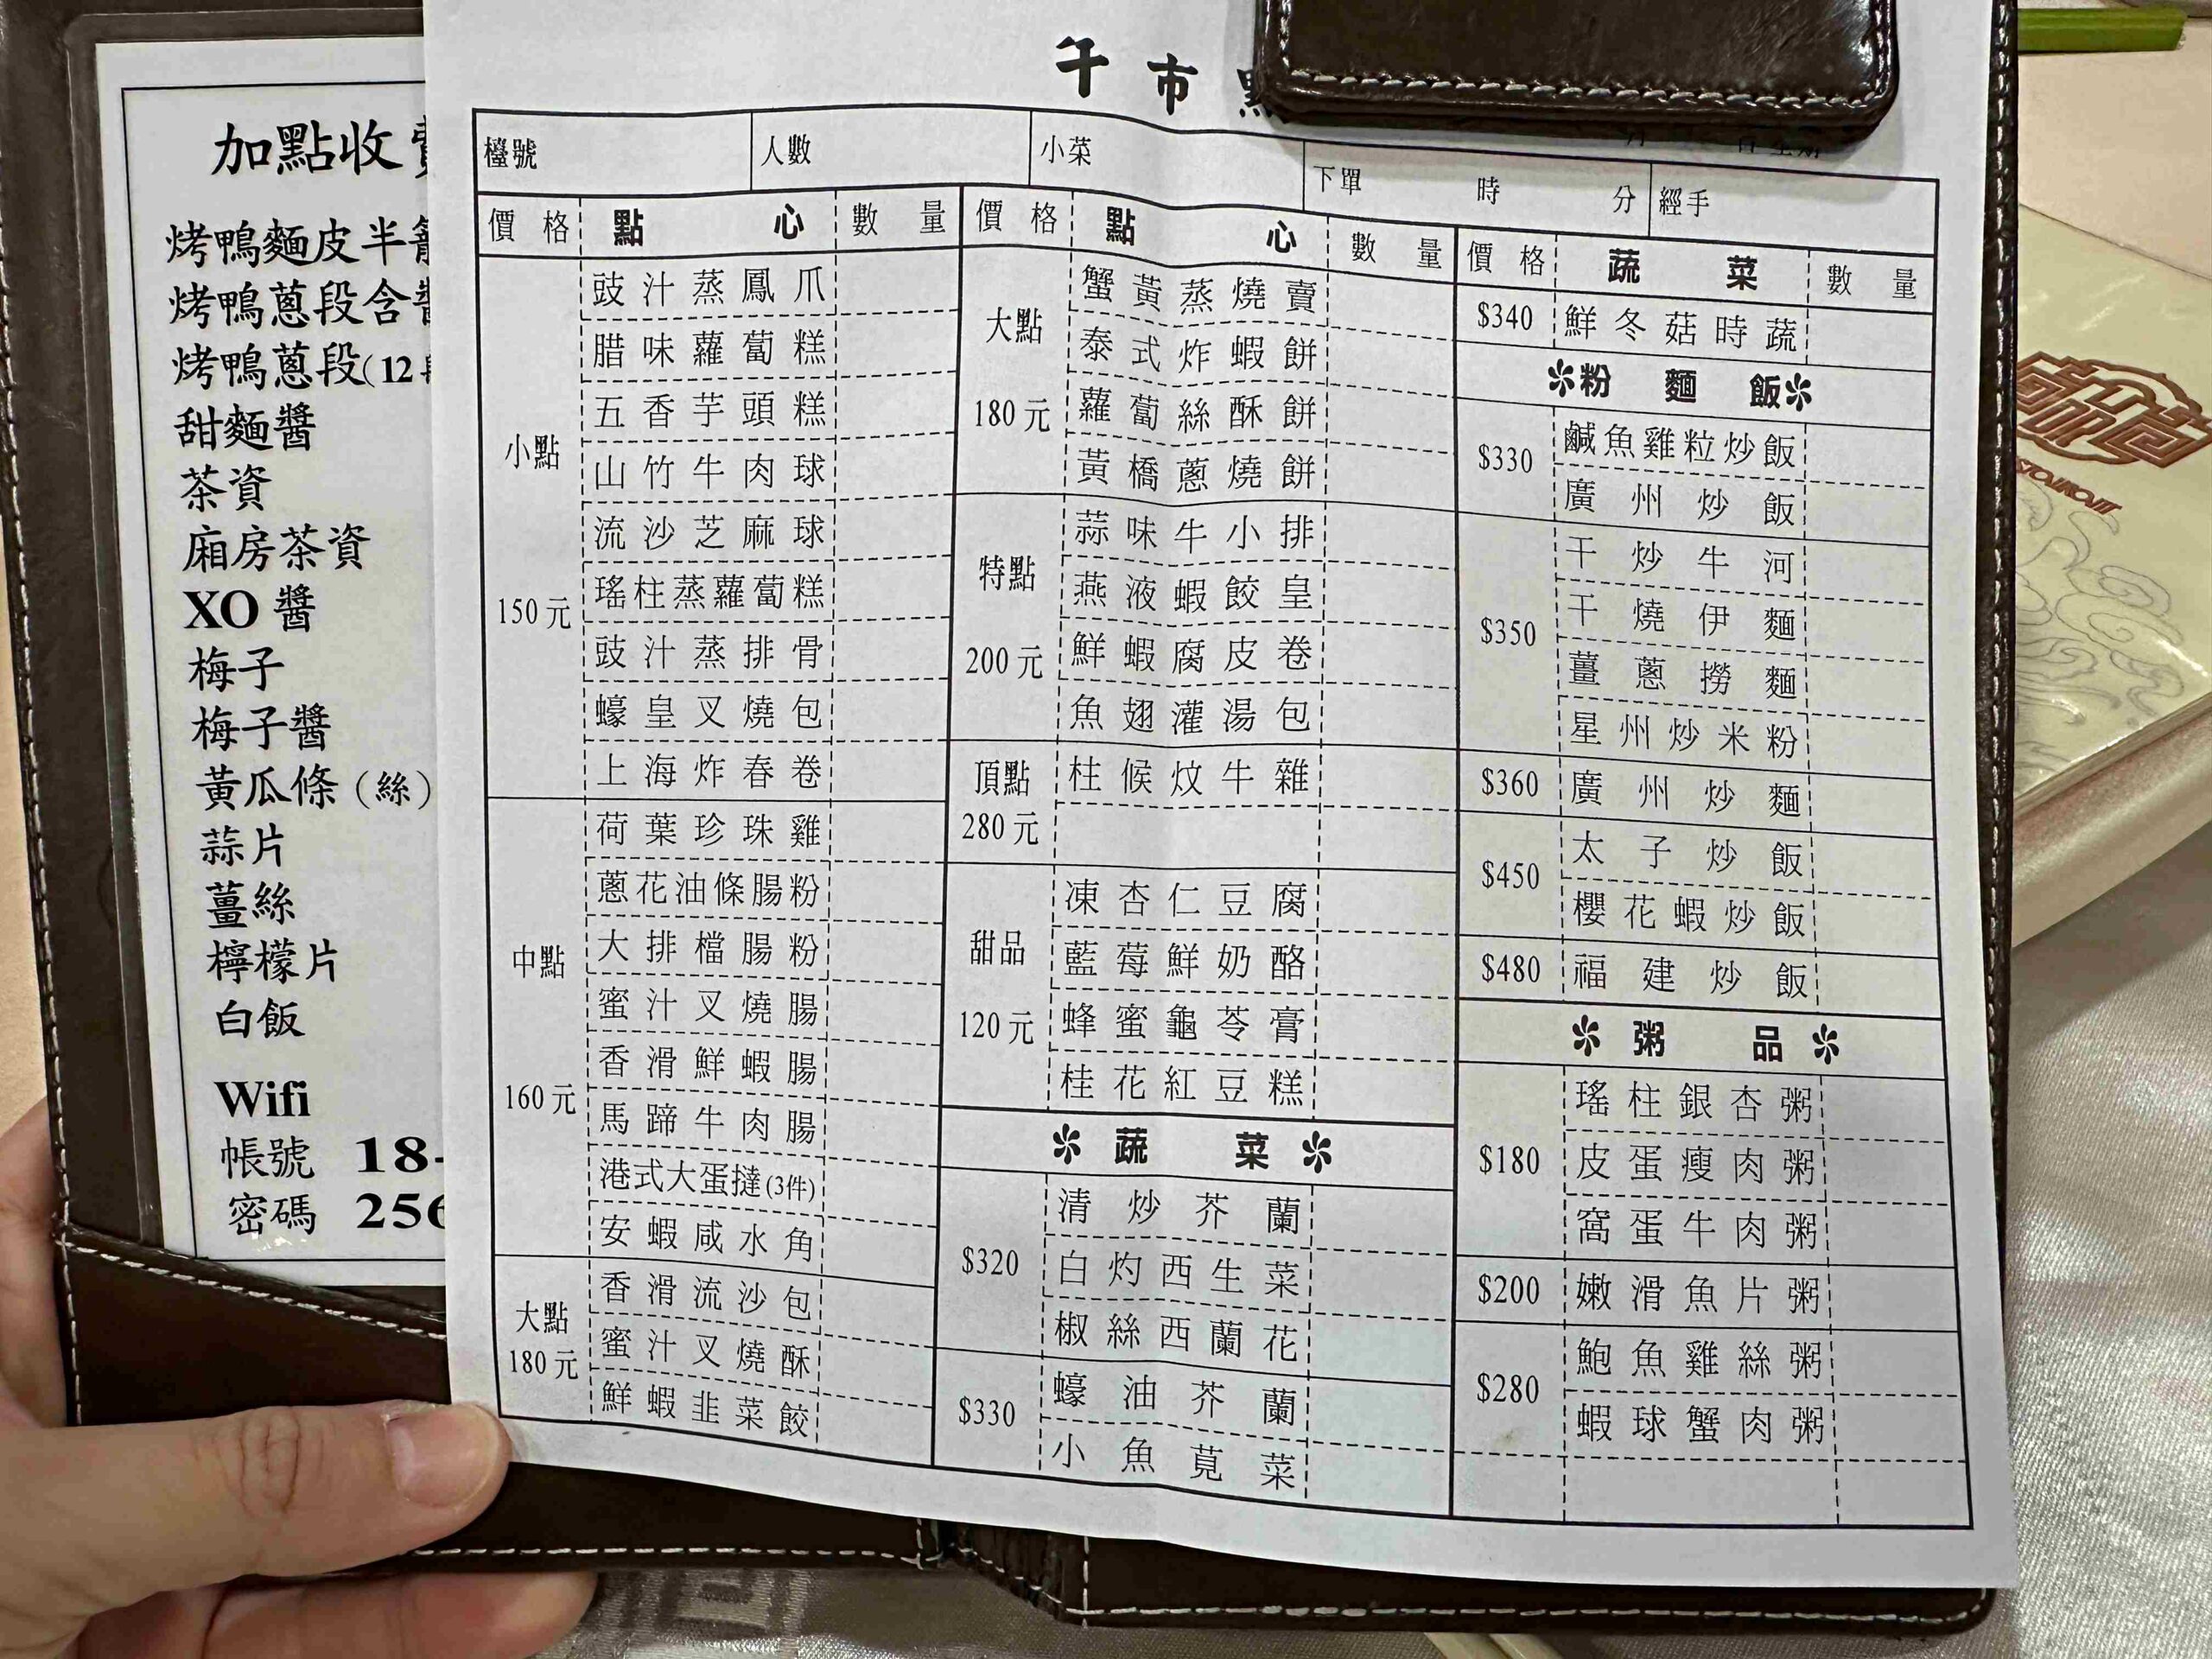 加點收
烤鴨麵皮半
烤鴨蔥段含
烤鴨蔥段(12
甜麵醬
茶資
廂房茶資
XO 醬
梅子
梅子醬
黃瓜條（絲）
蒜片
薑絲
檸檬片
白飯
Wifi
帳號 18-
密碼 256
午市點
檯號
人數
小菜
下單 時 分
經手
價格 點心 數量
小點
150元
豉汁蒸鳳爪
腊味蘿蔔糕
五香芋頭糕
山竹牛肉球
流沙芝麻球
瑤柱蒸蘿蔔糕
豉汁蒸排骨
蠔皇叉燒包
上海炸春卷
中點
160元
荷葉珍珠雞
蔥花油條腸粉
大排檔腸粉
蜜汁叉燒腸
香滑鮮蝦腸
馬蹄牛肉腸
港式大蛋撻(3件)
安蝦咸水角
大點
180元
香滑流沙包
蜜汁叉燒酥
鮮蝦韭菜餃
價格 點心 數量
大點
180元
蟹黃蒸燒賣
泰式炸蝦餅
蘿蔔絲酥餅
黃橋蔥燒餅
特點
200元
蒜味牛小排
燕液蝦餃皇
鮮蝦腐皮卷
魚翅灌湯包
頂點
280元
柱候炆牛雜
甜品
120元
凍杏仁豆腐
藍莓鮮奶酪
蜂蜜龜苓膏
桂花紅豆糕
✻蔬菜✻
$320
清炒芥蘭
白灼西生菜
椒絲西蘭花
$330
蠔油芥蘭
小魚莧菜
價格 蔬菜 數量
$340 鮮冬菇時蔬
✻粉麵飯✻
$330
鹹魚雞粒炒飯
廣州炒飯
$350
干炒牛河
干燒伊麵
薑蔥撈麵
星州炒米粉
$360 廣州炒麵
$450
太子炒飯
櫻花蝦炒飯
$480 福建炒飯
✻粥品✻
$180
瑤柱銀杏粥
皮蛋瘦肉粥
窩蛋牛肉粥
$200 嫩滑魚片粥
$280
鮑魚雞絲粥
蝦球蟹肉粥